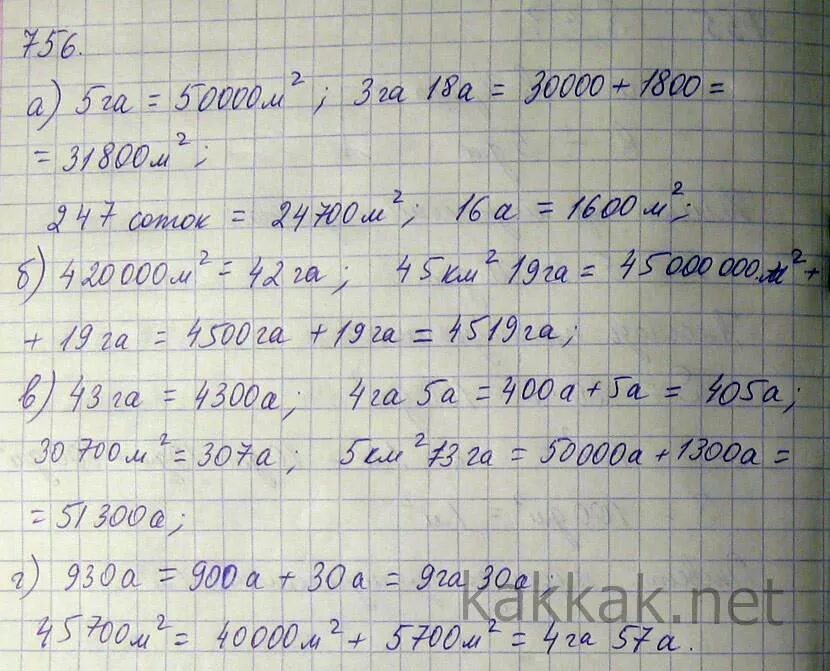 756.
а) 5га = 50000м²; 3га 18а = 30000 + 1800 =
= 31800м²;
247 соток = 24700м²; 16а = 1600м²;
б) 420000м² = 42га; 45км² 19га = 45000000м² +
+ 19га = 4500га + 19га = 4519га;
в) 43га = 4300а; 4га 5а = 400а + 5а = 405а;
30700м² = 307а; 5км² 13га = 50000а + 1300а =
= 51300а;
г) 930а = 900а + 30а = 9га 30а;
45700м² = 40000м² + 5700м² = 4га 57а.
kakkak.net